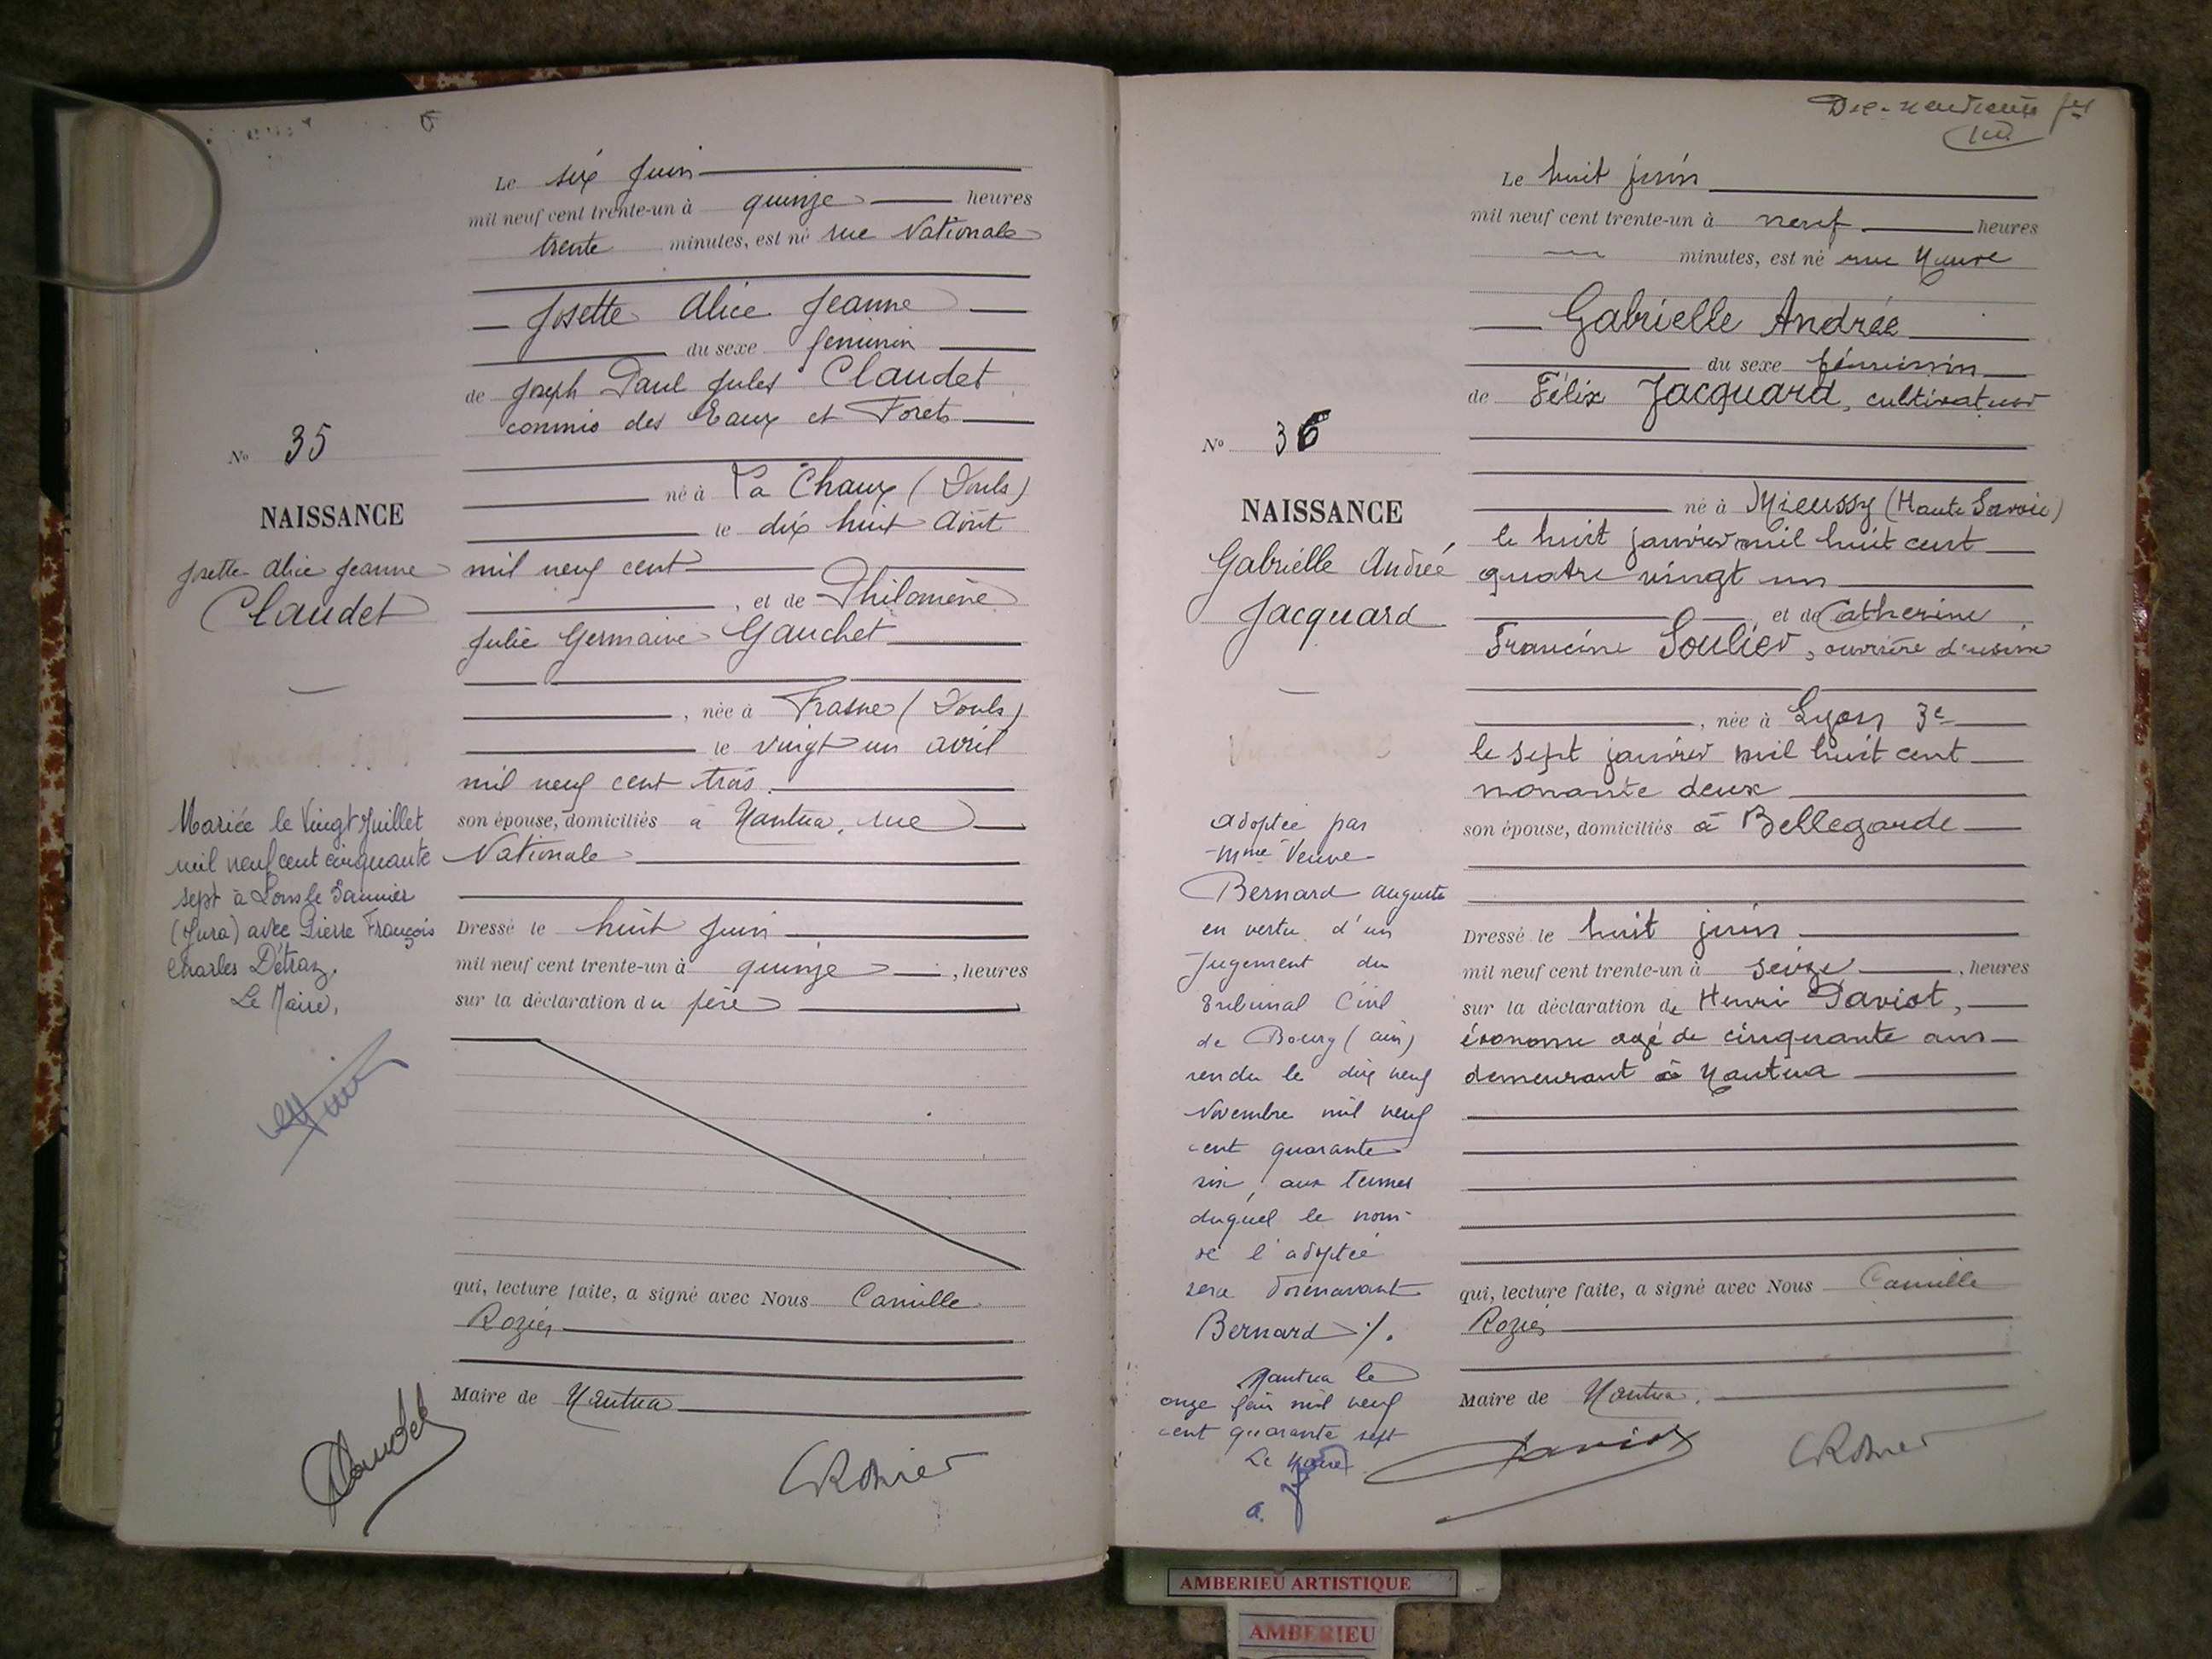 Le six Juin
mil neuf cent trente-un à quinze heures
trente minutes, est né rue Nationale
Josette Alice Jeanne
du sexe féminin
de Joseph Paul Jules Claudet
commis des Eaux et Forets
né à La Chaux (Doubs)
le dix huit Août
mil neuf cent
, et de Philomène
Julie Germaine Gauchet
, née à Frasne (Doubs)
le vingt un avril
mil neuf cent trois
son épouse, domiciliés à Nantua, rue
Nationale
Dressé le huit Juin
mil neuf cent trente-un à quinze , heures
sur la déclaration du père
qui, lecture faite, a signé avec Nous Camille
Rozier
Maire de Nantua
Claudet
CRozier
No 35
NAISSANCE
Josette Alice Jeanne
Claudet
Mariée le Vingt Juillet
mil neuf cent cinquante
sept à Lons le Saunier
(Jura) avec Pierre François
Charles Détraz.
Le Maire,
Le huit juin
mil neuf cent trente-un à neuf heures
minutes, est né rue Neuve
Gabrielle Andrée
du sexe féminin
de Félix Jacquard, cultivateur
né à Mieussy (Haute Savoie)
le huit janvier mil huit cent
quatre vingt un
, et de Catherine
Francine Soulier, ouvrière d'usine
, née à Lyon 3e
le sept janvier mil huit cent
nonante deux
son épouse, domiciliés à Bellegarde
Dressé le huit juin
mil neuf cent trente-un à seize , heures
sur la déclaration de Henri Paviot,
économe agé de cinquante ans
demeurant à Nantua
qui, lecture faite, a signé avec Nous Camille
Rozier
Maire de Nantua.
Paviot
CRozier
No 36
NAISSANCE
Gabrielle Andrée
Jacquard
Adoptée par
Mme Veuve
Bernard Auguste
en vertu d'un
Jugement du
Tribunal Civil
de Bourg (Ain)
rendu le dix neuf
Novembre mil neuf
cent quarante
six, aux termes
duquel le nom
de l'adoptée
sera dorénavant
Bernard ./.
Nantua le
onze Juin mil neuf
cent quarante sept
Le Maire
AMBERIEU ARTISTIQUE
AMBERIEU